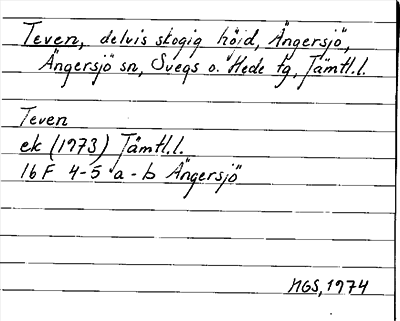 Teven, delvis skogig höjd, Ängersjö,
Ängersjö sn, Svegs o. Hede tg, Jämtl.l.
Teven
ek (1973) Jämtl.l.
16F 4-5 a-b Ängersjö
MGS, 1974